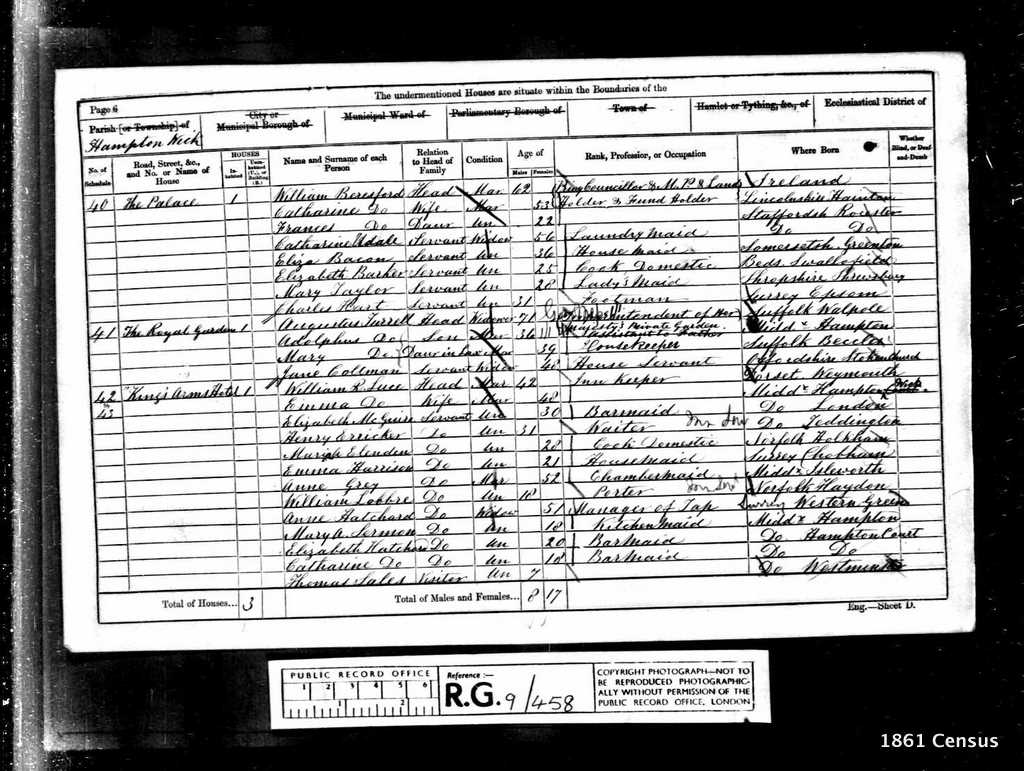 The undermentioned Houses are situate within the Boundaries of the
Page 6
Parish [or Township] of
Hampton Wick
City or Municipal Borough of
Municipal Ward of
Parliamentary Borough of
Town of
Hamlet or Tything, &c., of
Ecclesiastical District of
No. of Schedule
Road, Street, &c., and No. or Name of House
HOUSES
Inhabited
Uninhabited (U.), or Building (B.)
Name and Surname of each Person
Relation to Head of Family
Condition
Age of
Males
Females
Rank, Profession, or Occupation
Where Born
Whether Blind, or Deaf-and-Dumb
40 The Palace 1 William Beresford Head Mar 62 Privy Councillor & M.P. & Land Ireland
Catharine Do Wife Mar 53 Holder & Fund Holder Lincolnshire Hainton
Frances Do Daur Un 22 Staffordsh Rocester
Catharine Udale Servant Widow 56 Laundry maid Do Do
Eliza Bacon Servant Un 36 House maid Somersetsh Greenton
Elizabeth Barker Servant Un 25 Cook Domestic Beds. Swallofield
Mary Taylor Servant Un 28 Lady's Maid Shropshire Shrewsbury
Charles Hart Servant Un 31 Footman Surrey Epsom
41 The Royal Gardens 1 Augustus Turrell Head Widower 71 Superintendent of Her Suffolk Walpole
Majesty's Private Garden
Adolphus Do Son Mar 36 Assistant to Father Midd x Hampton
Mary Do Daur in law Mar 39 Housekeeper Suffolk Beccles
Jane Coltman Servant Widow 40 House Servant Oxfordshire
42 & 43 "Kings Arms Hotel 1 William R Luce Head Mar 42 Inn Keeper Dorset Weymouth
Emma Do Wife Mar 48 Midd x Hampton Wick
Elizabeth McGuire Servant Un 30 Barmaid Do London
Henry Erricker Do Un 31 Waiter Do Teddington
Do Un 28 Cook Domestic Norfolk Holkham
Emma Harrison Do Un 21 House Maid Surrey Chobham
Anne Grey Do Mar 52 Chambermaid Midd x Isleworth
William Do Un 18 Porter Norfolk Haydon
Anne Hatchard Do Widow 51 Manager of Tap Surrey Western Green
Mary A. Sermon Do Un 18 Kitchen Maid Midd x Hampton
Elizabeth Hatchard Do Un 20 Bar Maid Do Hampton Court
Catharine Do Do Un 18 Bar Maid Do Do
Thomas Sales Visitor Un 7 Do Westminster
Total of Houses... 3
Total of Males and Females... 8 17
Eng.—Sheet D.
PUBLIC RECORD OFFICE
1 2 3 4 5 6
1 2
Reference :—
R.G. 9/458
COPYRIGHT PHOTOGRAPH—NOT TO
BE REPRODUCED PHOTOGRAPHIC-
ALLY WITHOUT PERMISSION OF THE
PUBLIC RECORD OFFICE, LONDON
1861 Census